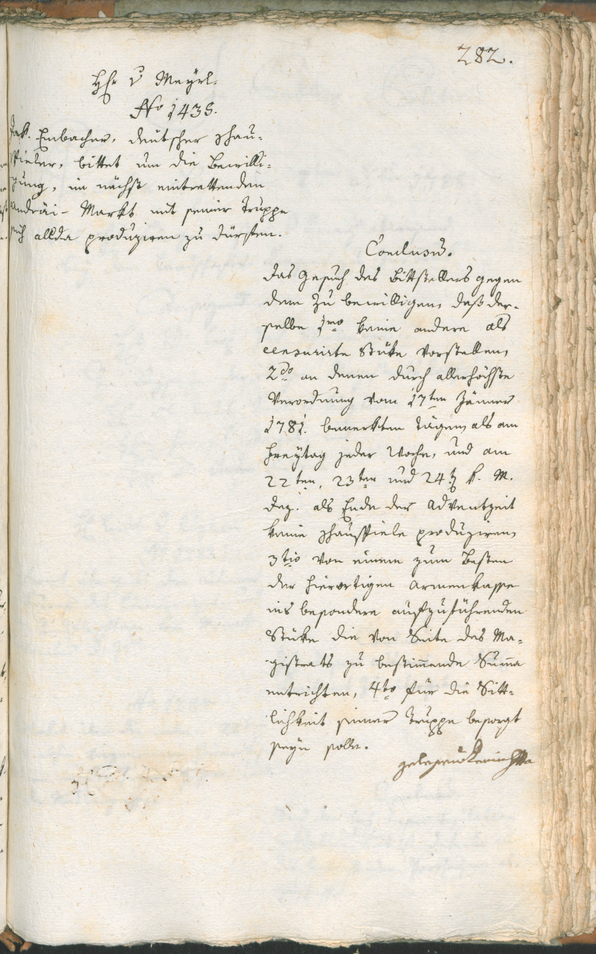 282.
Hr. v Mayrl.
No 1435.
Jak. Embacher, deutscher Schau-
spieler, bittet um die Bewilli-
gung, im nächst eintrettenden
Andräi-Markt mit seiner Truppe
sich allda produziren zu dürfen.
Conclusū.
Das Gesuch des Bittstellers gegen
deme zu bewilligen, daß der-
selbe 1mo keine andere als
censurirte Stüke vorstellen,
2do an denen durch allerhöchste
Verordnung vom 17ten Jänner
1781. bemerkten Tägen, als am
Freytag jeder Woche, und am
22ten, 23ten und 24t k. M.
Dez. als Ende der Adventzeit
keine Schauspiele produziren,
3tio von einem zum Besten
der hierortigen Armenkasse
ins besondere aufzuführenden
Stüke die von Seite des Ma-
gistrats zu bestim̄ende Sum̄a
entrichten, 4to für die Sitt-
lichkeit seiner Truppe besorgt
seyn solle.
gelesen